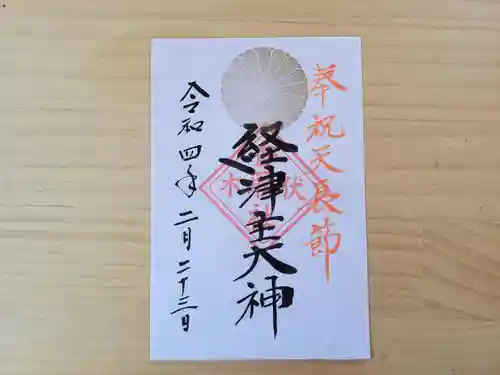 奉祝天長節
経津主大神
令和四年二月二十三日